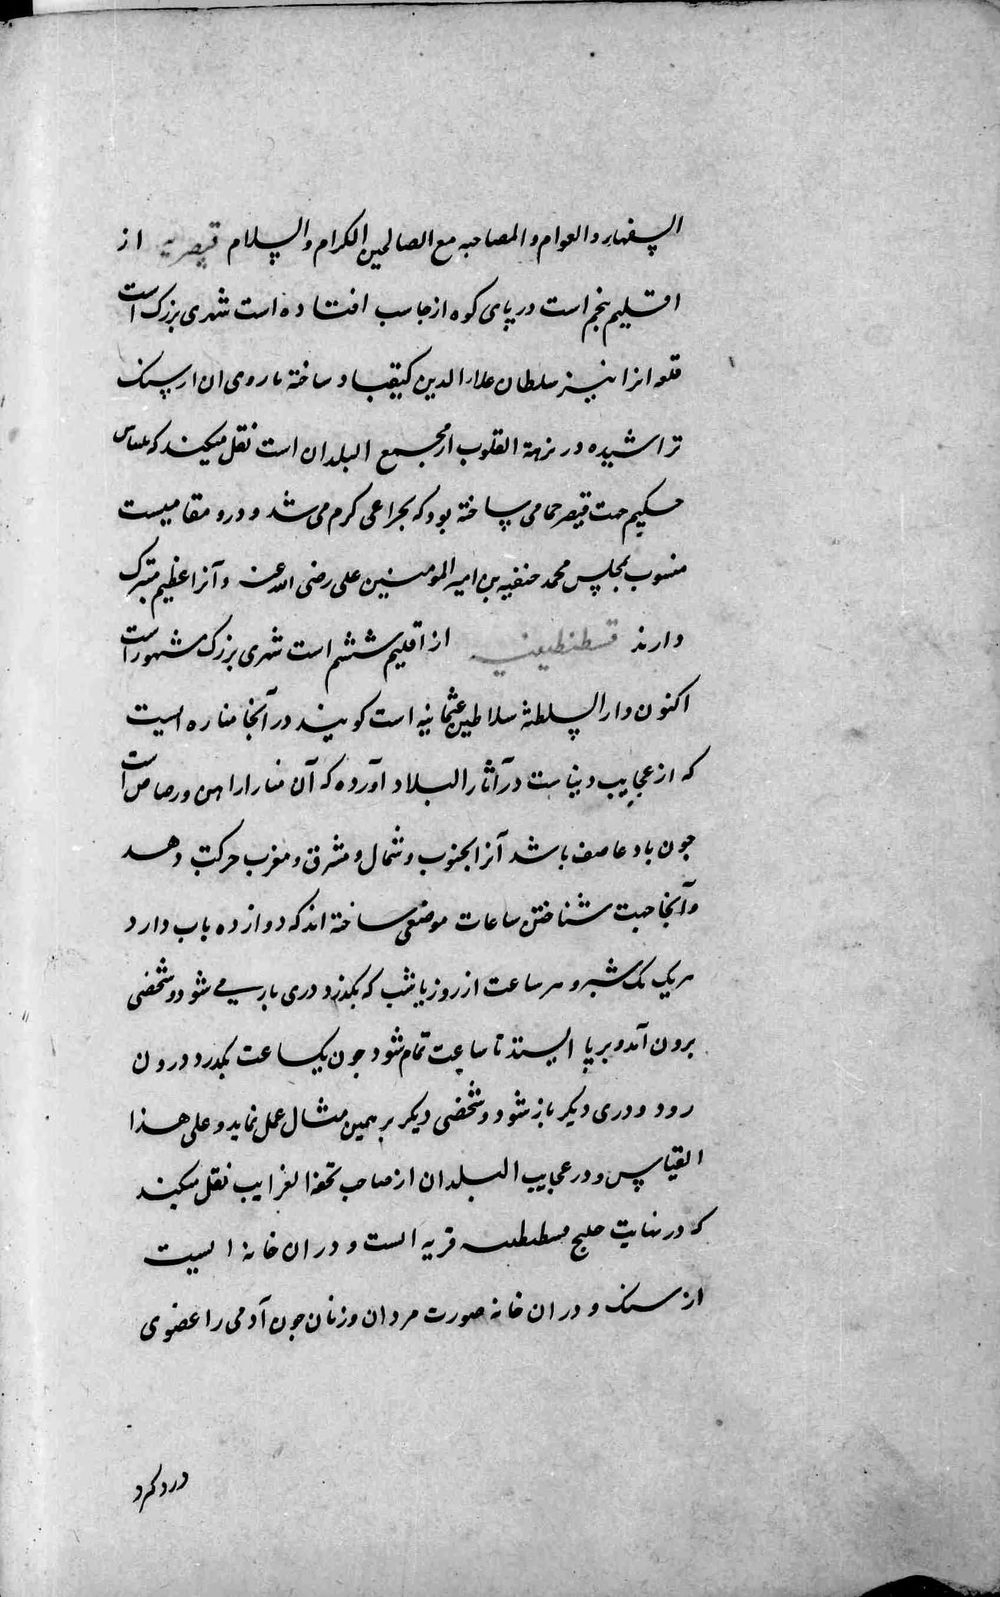 السفهاء والعوام والمصاحبه مع الصالحین الکرام والسلام قیصریه از
اقلیم پنجم است در پای کوه ارجاسب افتاده است شهری بزرک است
قلعه انرا نیز سلطان علاء الدین کیقباد ساخته باروی ان از سنک
تراشیده در نزهة القلوب از مجمع البلدان است نقل میکند که بلیناس
حکیم جهت قیصر حمامی ساخته بود که بچراغی کرم می شد و درو مقامیست
منسوب بمجلس محمد حنفیه بن امیر المومنین علی رضی الله عنه وآنرا عظیم متبرک
دارند قسطنطینیه از اقلیم ششم است شهری بزرک مشهور است
اکنون دار السلطنة سلاطین عثمانیه است کویند در آنجا مناره ایست
که از عجایب دنیاست در آثار البلاد آورده که آن منار از اهن ورصاص است
جون باد عاصف باشد آنرا بجنوب و شمال و مشرق و مغرب حرکت دهد
وآنجا جهت شناختن ساعات موضعی ساخته اند که دوازده باب دارد
هر یک یک شبر و هر ساعت از روز یا شب که بگذرد دری باز می شود و شخصی
برون آمد و بر پا ایستد تا ساعت تمام شود جون یکساعت بکذرد درون
رود و دری دیکر باز شود و شخصی دیکر بر همین مثال عمل نماید و علی هذا
القیاس و در عجایب البلدان از صاحب تحفة الغرایب نقل میکند
که در نهایت خلیج قسطنطنیه قریه است و در ان خانه ایست
از سنک و در ان خانه صورت مردان و زنان جون آدمی را عضوی
درد کرد